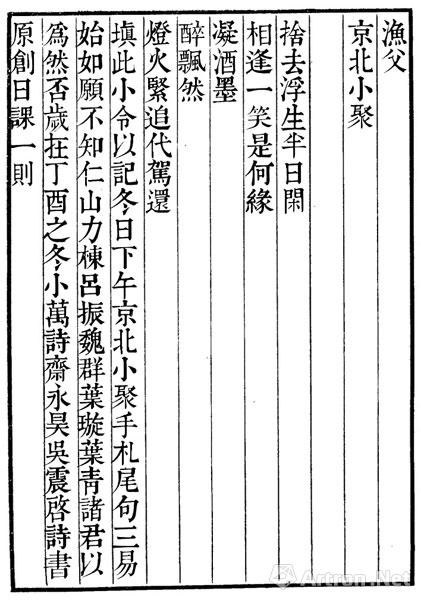 漁父
京北小聚
捨去浮生半日閑
相逢一笑是何緣
凝酒墨
醉飄然
燈火緊追代駕還
填此小令以記冬日下午京北小聚手札尾句三易
始如願不知仁山力棟呂振魏群葉璇葉青諸君以
爲然否歲在丁酉之冬小萬詩齋永昊吳震啓詩書
原創日課一則
Artron.Net